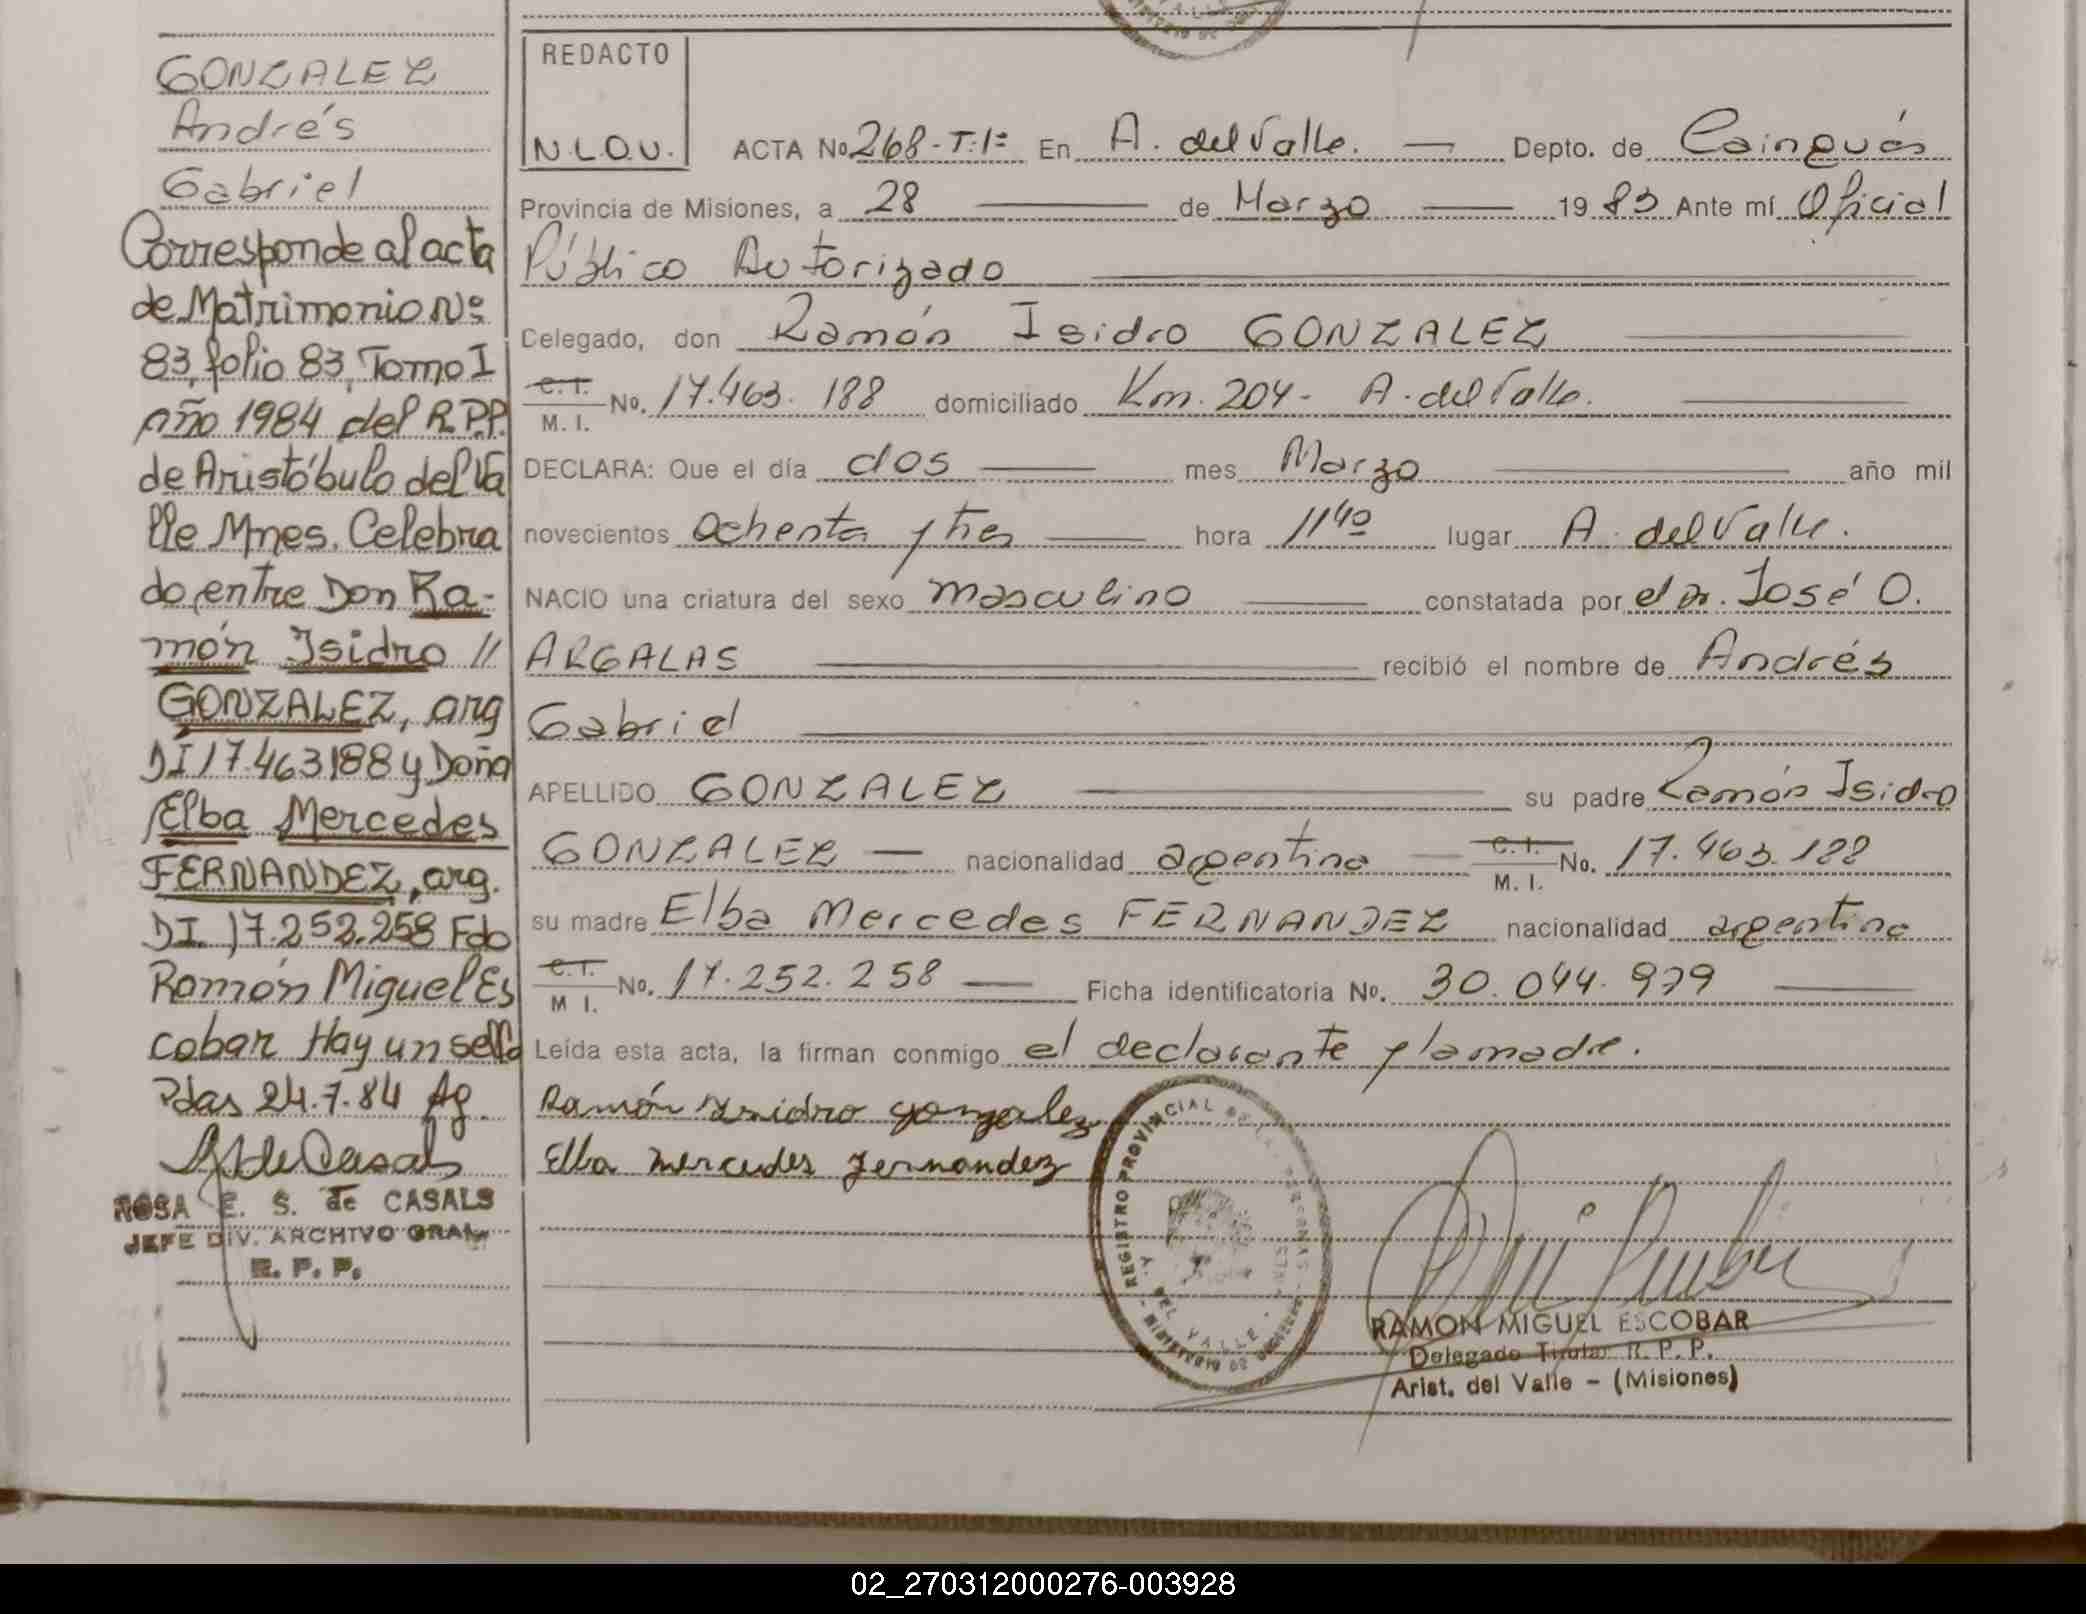 GONZALEZ
Andrés
Gabriel
Corresponde al acta
de Matrimonio Nº
83, folio 83, Tomo I
año 1984 del R.P.P.
de Aristóbulo del Va
lle Mnes. Celebra
do entre Don Ra-
món Isidro //
GONZALEZ, arg
DI 17.463188 y Doña
Elba Mercedes
FERNANDEZ, arg.
DI. 17.252.258 Fdo
Ramón Miguel Es
cobar Hay un sello
Pdas 24.7.84 Ag.
ROSA E. S. de CASALS
JEFE DIV. ARCHIVO GRAL
R. P. P.
REDACTO
N.L.O.V.
ACTA No 268-T:1º En A. del Valle. Depto. de Cainguás
Provincia de Misiones, a 28 de Marzo 1983 Ante mí Oficial
Público Autorizado
Celegado, don Ramón Isidro GONZALEZ
C.I. M. I. No. 17.463.188 domiciliado Km. 204- A. del Valle.
DECLARA: Que el día dos mes Marzo año mil
novecientos ochenta y tres hora 11 40 lugar A. del Valle.
NACIO una criatura del sexo masculino constatada por el Dr. José O.
ARGALAS recibió el nombre de Andrés
Gabriel
APELLIDO GONZALEZ su padre Ramón Isidro
GONZALEZ — nacionalidad argentina C.I. M. I. No. 17.463.188
su madre Elba Mercedes FERNANDEZ nacionalidad argentina
C.I. M I. No. 17.252.258 Ficha identificatoria No. 30.044.979
Leída esta acta, la firman conmigo el declarante y la madre.
Ramón Isidro Gonzalez
Elba Mercedes Fernandez
REGISTRO PROVINCIAL DE LAS PERSONAS
DEL VALLE
RAMON MIGUEL ESCOBAR
Delegado Titular R. P. P.
Arist. del Valle - (Misiones)
02_270312000276-003928